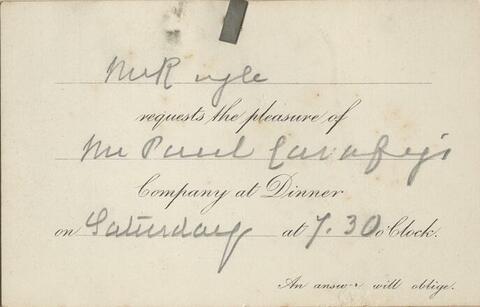 Mr R
requests the pleasure of
Mr Paul Cavafy's
Company at Dinner
on Saturday at 7.30 o'Clock.
An answer will oblige.